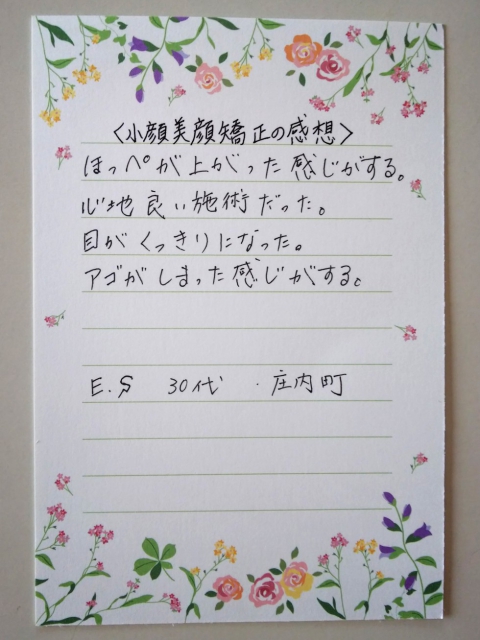 〈小顔美顔矯正の感想〉
ほっペが上がった感じがする。
心地良い施術だった。
目がくっきりになった。
アゴがしまった感じがする。
E.S 30代 ・庄内町